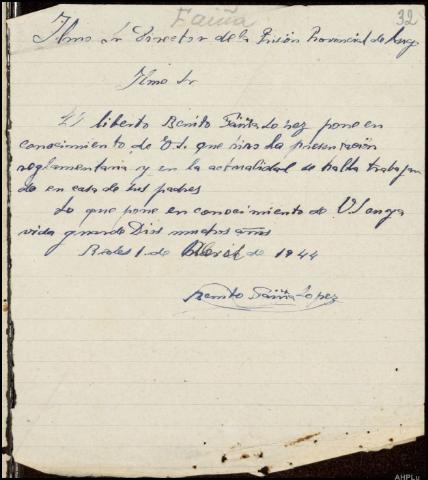 Fariña
32
Ilmo Sr Director de la Prisión Provincial de Lugo
Ilmo Sr
El liberto Benito Fariña López pone en
conocimiento de V.S. que hizo la presentación
reglamentaria y en la actualidad se halla trabajan
do en casa de sus padres
Lo que pone en conocimiento de VS cuya
vida guarde Dios muchos años
1 de Abril de 1944
Benito Fariña Lopez
AHPLu